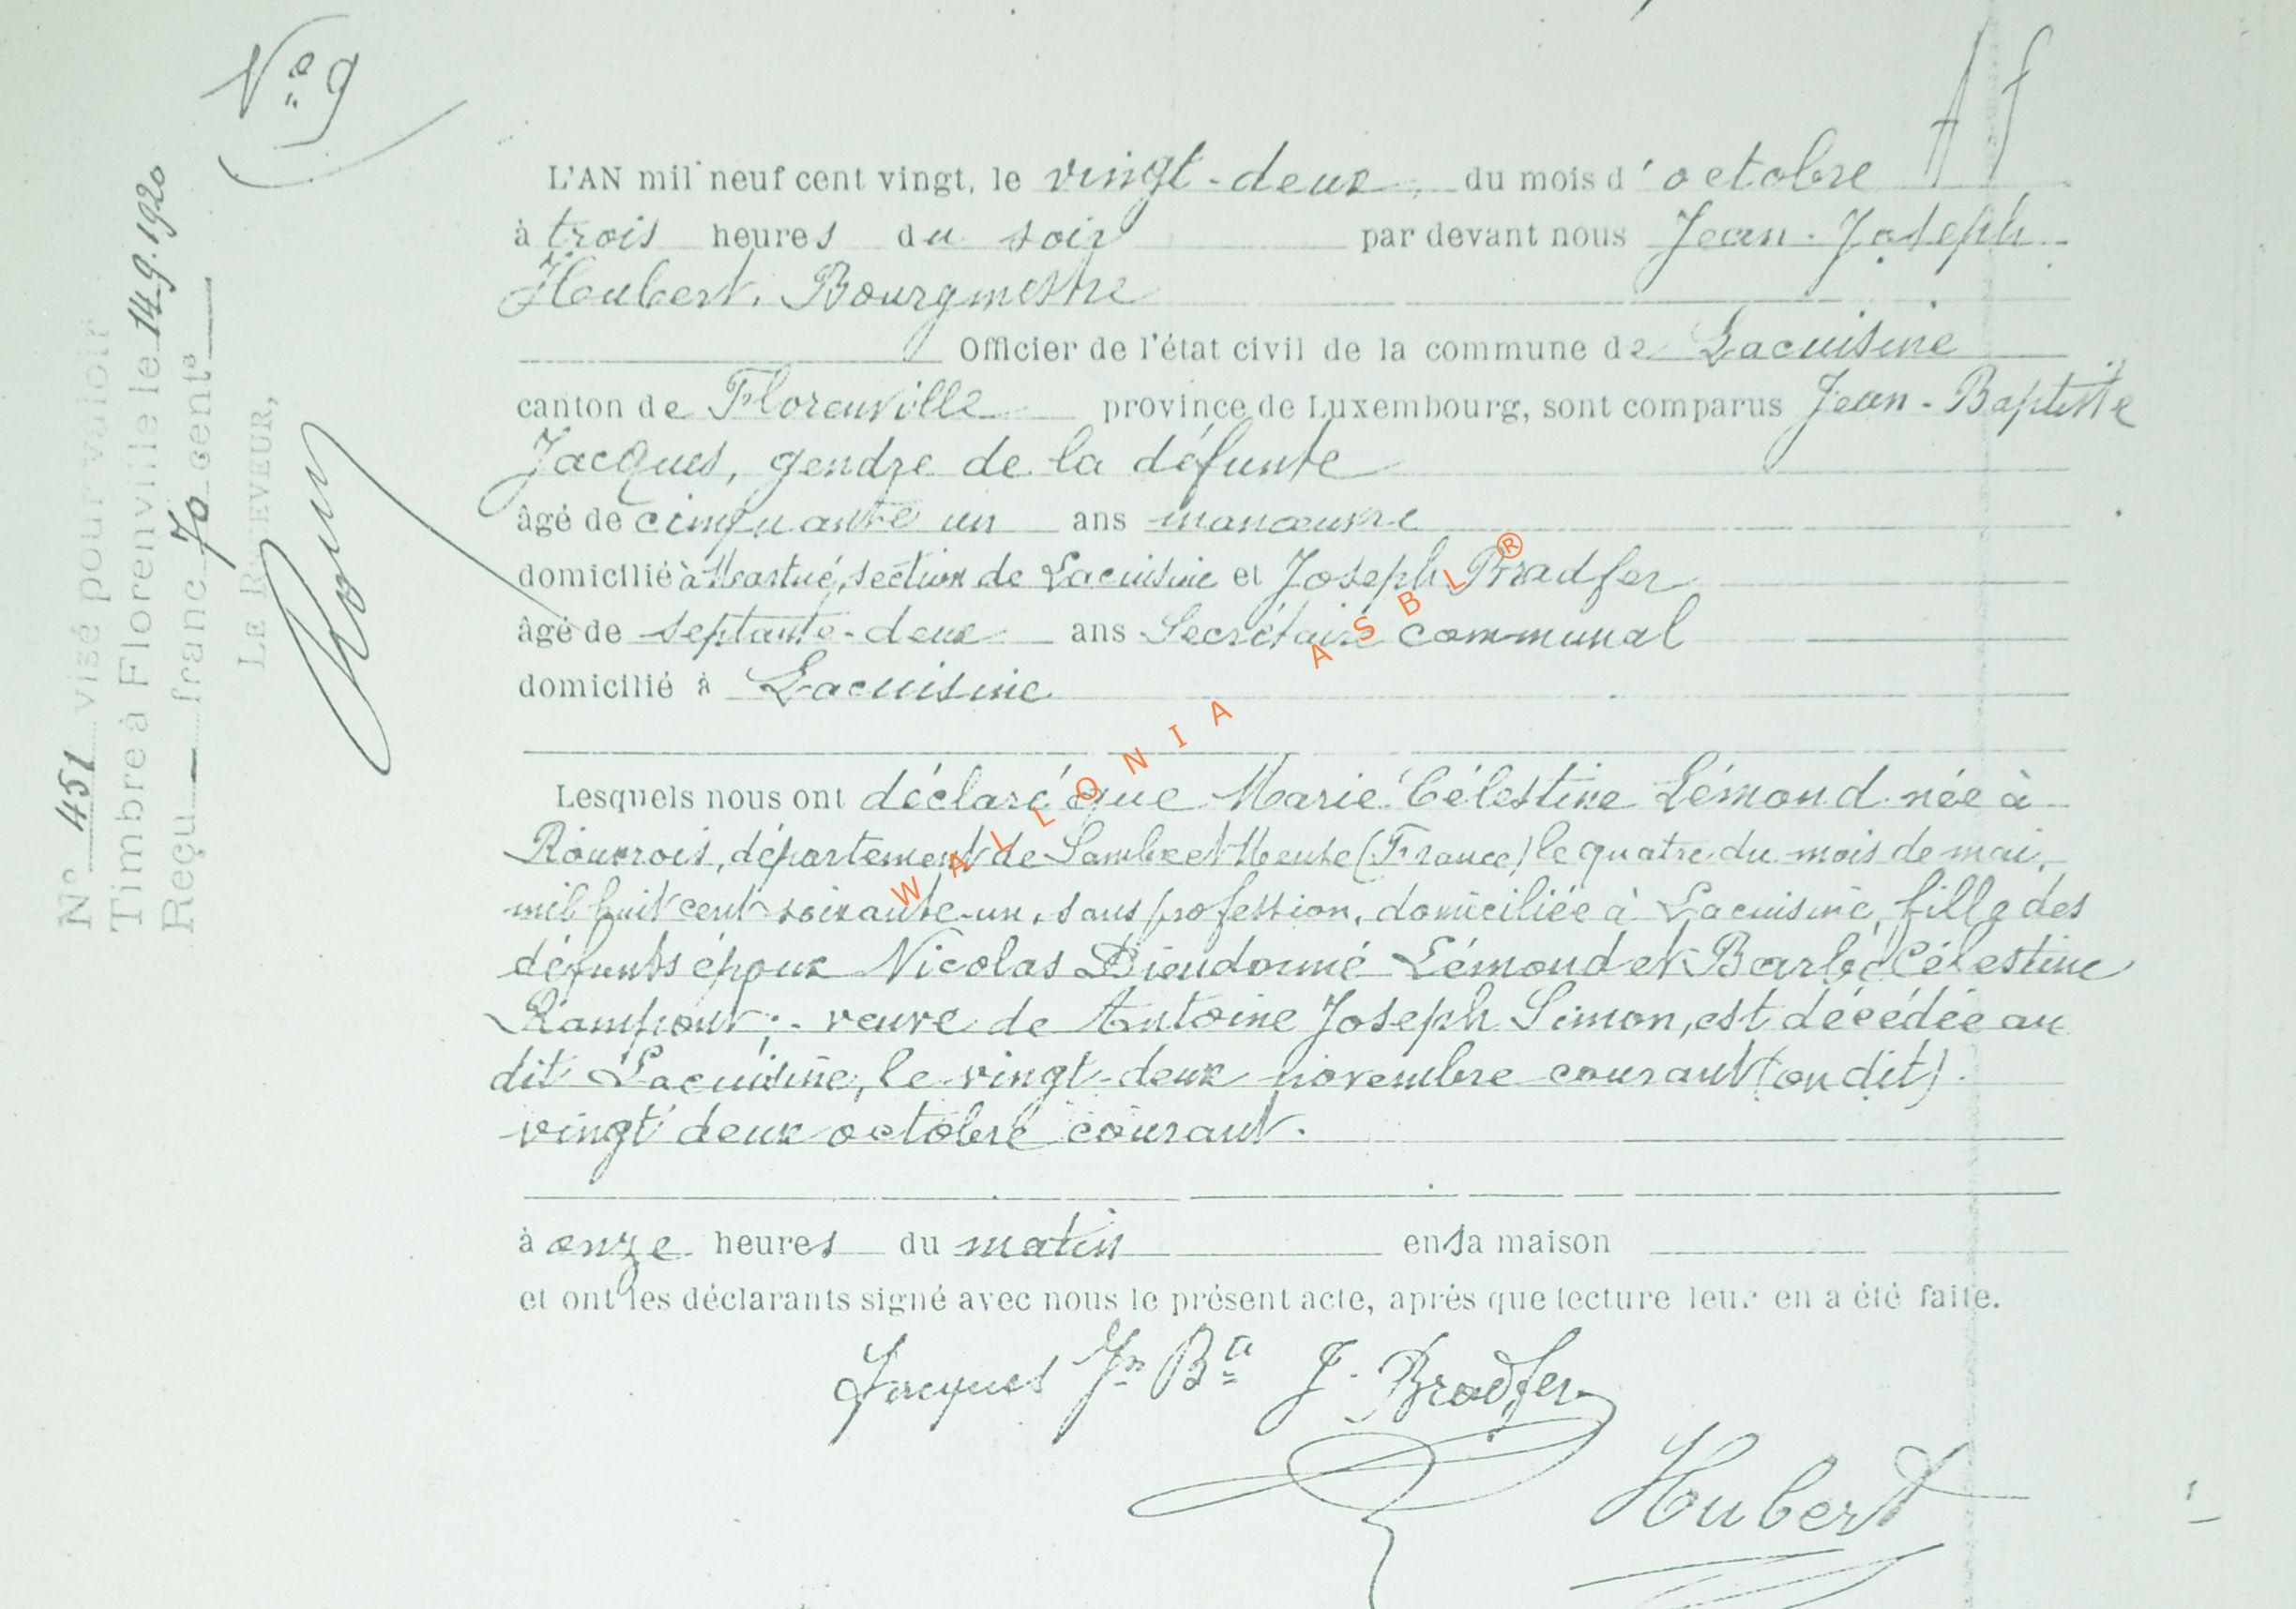 N° 9
N° 451 visé pour valoir
Timbre à Florenville le 14.9.1920
Reçu — franc 70 cent^s
LE RECEVEUR,
L'AN mil neuf cent vingt, le vingt-deux du mois d'octobre
à trois heures du soir par devant nous Jean-Joseph
Houbert, Bourgmestre
Officier de l'état civil de la commune de Lacuisine
canton de Florenville province de Luxembourg, sont comparus Jean-Baptiste
Jacques, gendre de la défunte
âgé de cinquante un ans manœuvre
domicilié à Martué, section de Lacuisine et Joseph Bradfer
âgé de septante-deux ans Secrétaire communal
domicilié à Lacuisine
Lesquels nous ont déclaré que Marie Célestine Lémond née à
département de Sambre et Meuse (France) le quatre du mois de mai,
mil huit cent soixante-un, sans profession, domiciliée à Lacuisine, fille des
défunts époux Nicolas Dieudonné Lémond et Barbe Célestine
Rampont; veuve de Antoine Joseph Simon, est décédée au
dit Lacuisine, le vingt-deux novembre courant (on dit)
vingt deux octobre courant.
à onze heures du matin en sa maison
et ont les déclarants signé avec nous le présent acte, après que lecture leur en a été faite.
Jacques Jn Bte J. Bradfer
Hubert
WALLONIA ASBL®